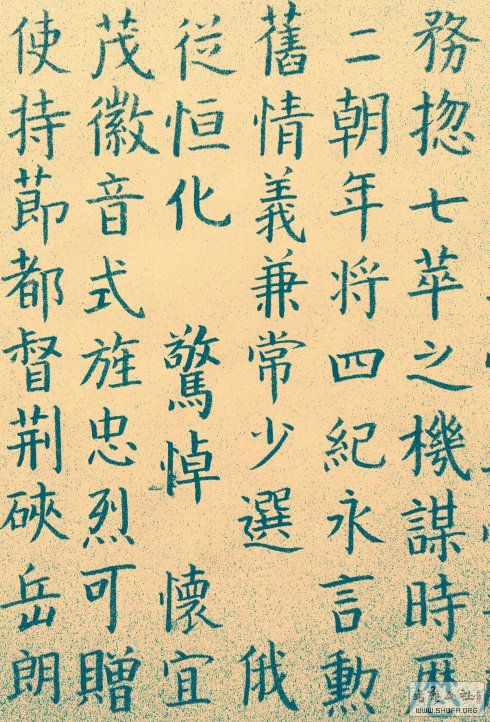 務揔七萃之機謀時歷
二朝年将四紀永言勳
舊情義兼常少選 俄
従恒化 驚悼 懷宜
茂徽音式旌忠烈可贈
使持節都督荆硤岳朗
书法公社
WWW.SHUFA.ORG